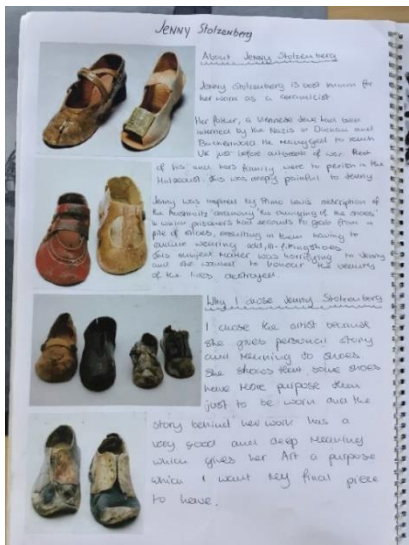 JENNY Stolzenberg
About Jenny Stolzenberg
Jenny Stolzenberg is best known for
her work as a ceramicist.
Her father, a Viennese Jew had been
interned by the Nazis in Dachau and
Buchenwald. He managed to reach
UK just before outbreak of war. Rest
of his and hers family were to perish in the
Holocaust. This was deeply painful to Jenny.
Jenny was inspired by Primo Levi's description of
the Auschwitz ceremony "the changing of the shoes"
in which prisoners had seconds to grab from a
pile of shoes, resulting in them having to
endure wearing odd, ill-fitting shoes.
This subject matter was horrifying to Jenny
and she wanted to honour the
of the lives destroyed
Why I chose Jenny Stolzenberg
I chose the artist because
she gives personal story
and meaning to shoes.
She shows that some shoes
have more purpose than
just to be worn and the
story behind her work has a
very good and deep meaning
which gives her Art a purpose
which I want my final piece
to have.